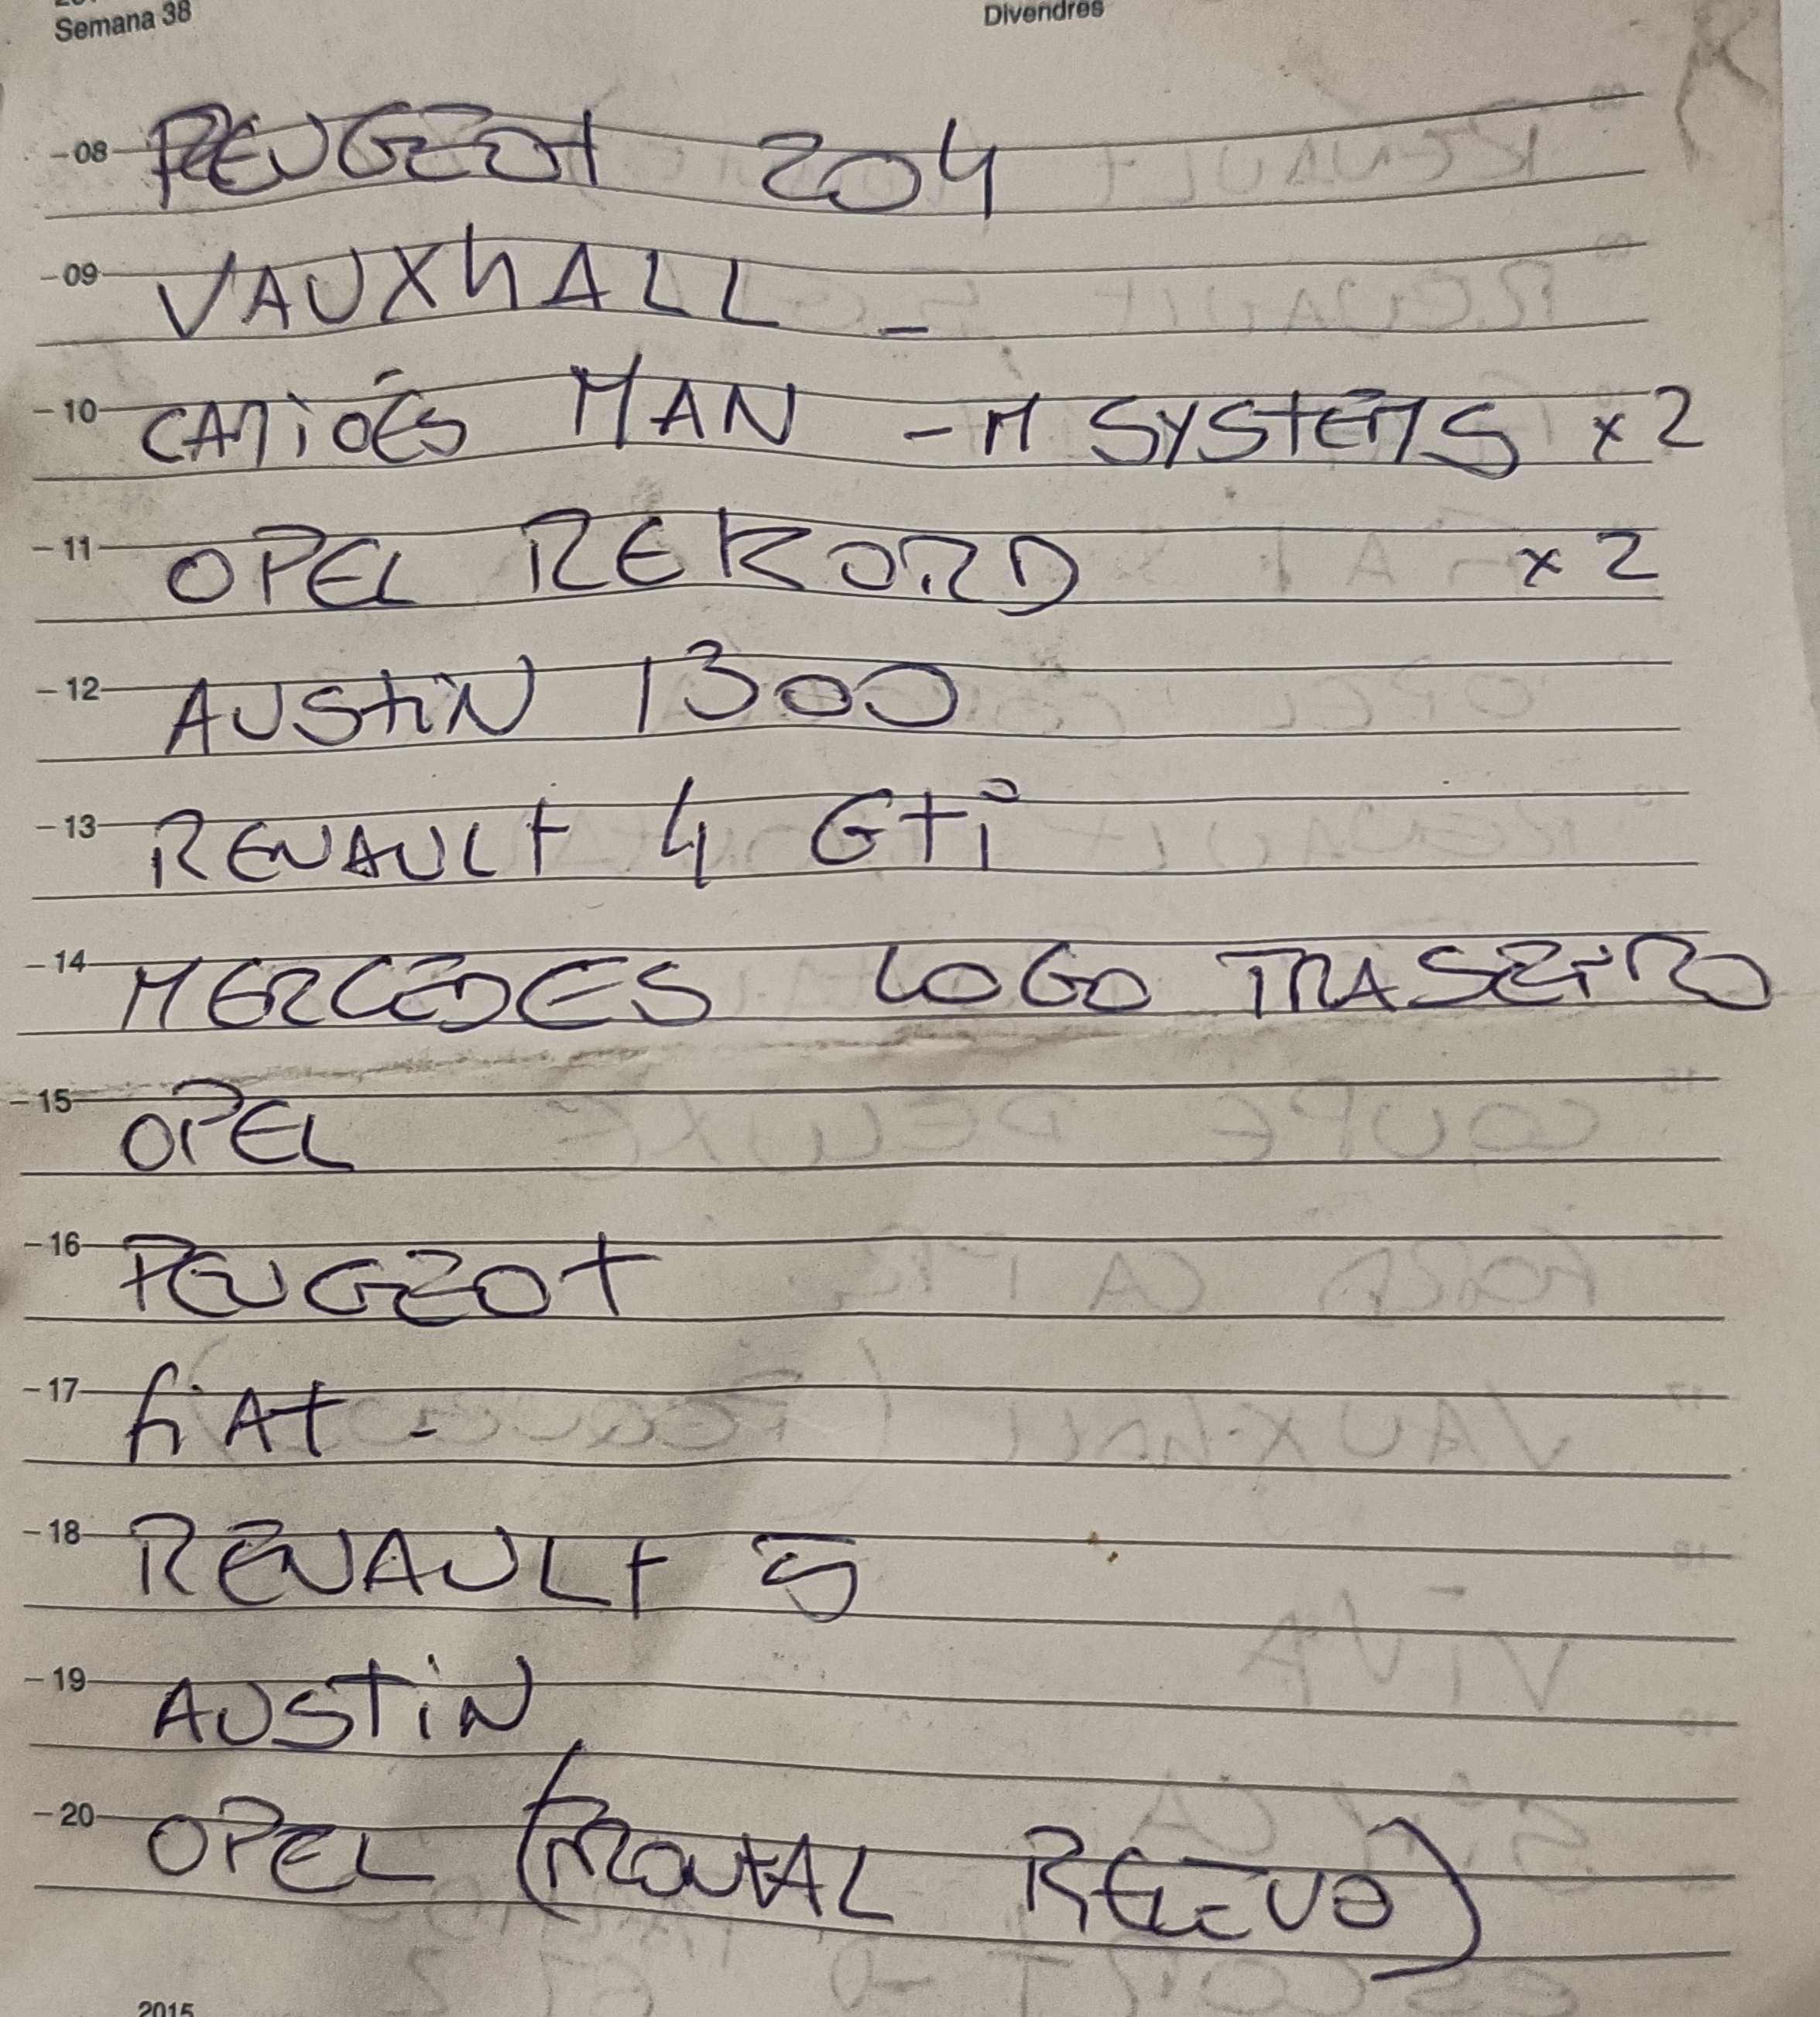 Semana 38
Divendres
-08 PEUGEOT 204
-09 VAUXHALL -
-10 CAMIÕES MAN - M SYSTEMS x2
-11 OPEL REKORD x2
-12 AUSTIN 1300
-13 RENAULT 4 GTi
-14 MERCEDES LOGO TRASEIRO
-15 OPEL
-16 PEUGEOT
-17 fiAT -
-18 RENAULT 5
-19 AUSTIN
-20 OPEL (FRONTAL RELEVO)
2015